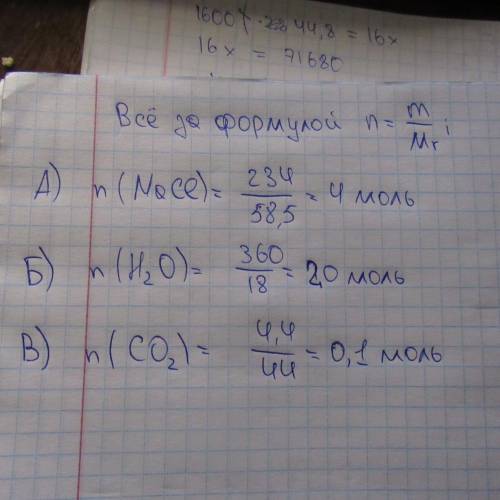 1600 · 44,8 = 16x
16x = 71680
Всё за формулой n = m/Mr;
А) n(NaCl) = 234/58,5 = 4 моль
Б) n(H₂O) = 360/18 = 20 моль
В) n(CO₂) = 4,4/44 = 0,1 моль